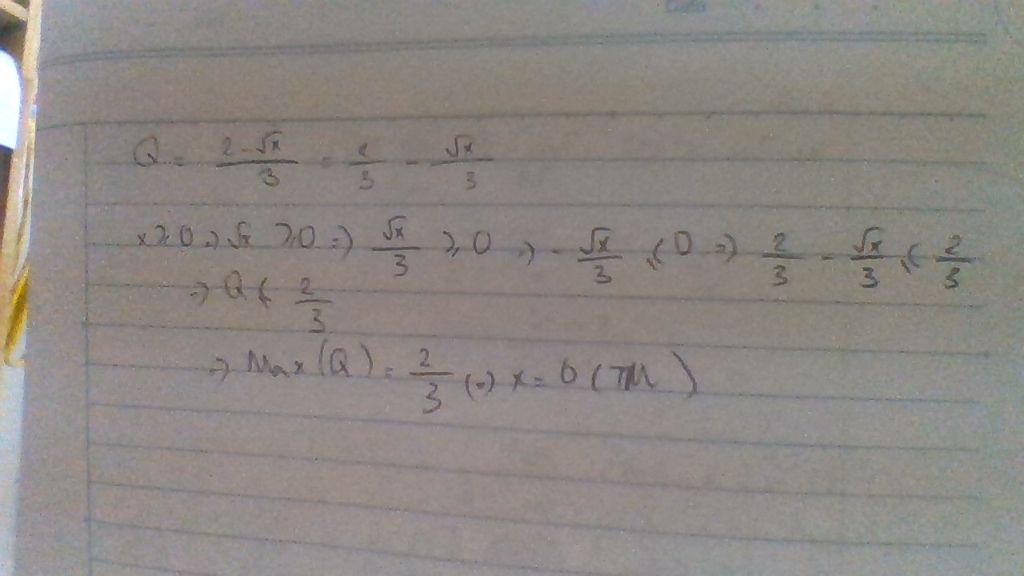 Q = \frac{2-\sqrt{x}}{3} = \frac{2}{3} - \frac{\sqrt{x}}{3}
x ≥ 0 => \sqrt{x} ≥ 0 => \frac{\sqrt{x}}{3} ≥ 0 => -\frac{\sqrt{x}}{3} ≤ 0 => \frac{2}{3} - \frac{\sqrt{x}}{3} ≤ \frac{2}{3}
=> Q ≤ \frac{2}{3}
=> Max(Q) = \frac{2}{3} (=) x = 0 (TM)